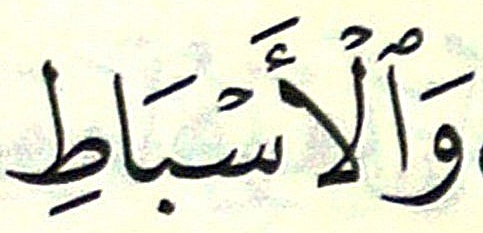 وَٱلْأَسْبَاطِ